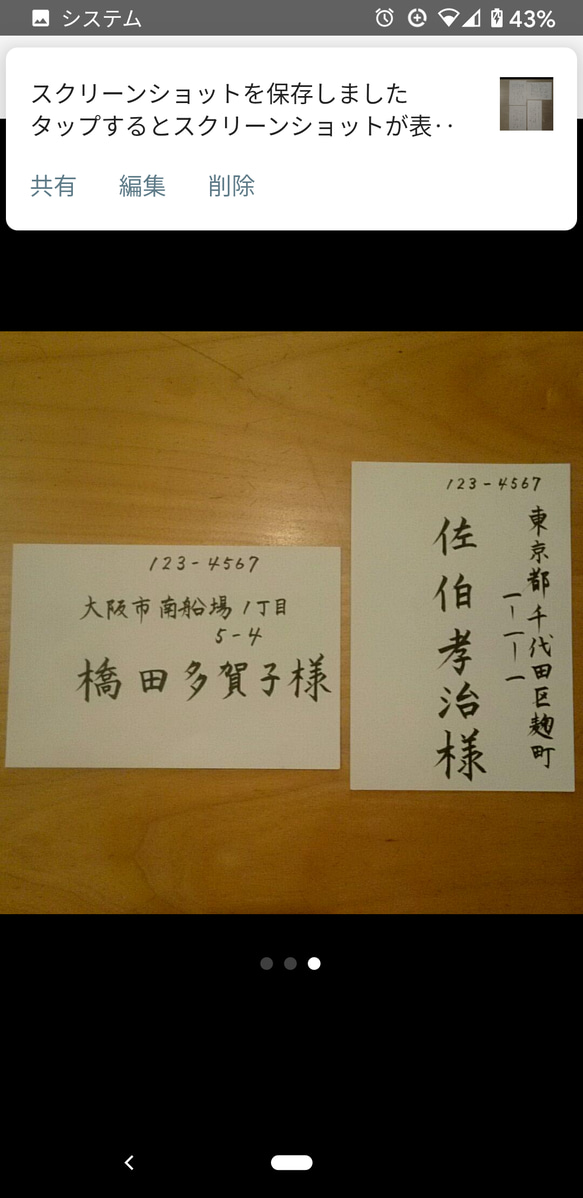 システム
43%
スクリーンショットを保存しました
タップするとスクリーンショットが表‥
共有 編集 削除
123-4567
大阪市南船場1丁目
5-4
橋田多賀子様
123-4567
東京都千代田区麹町
一-一-一
佐伯孝治様